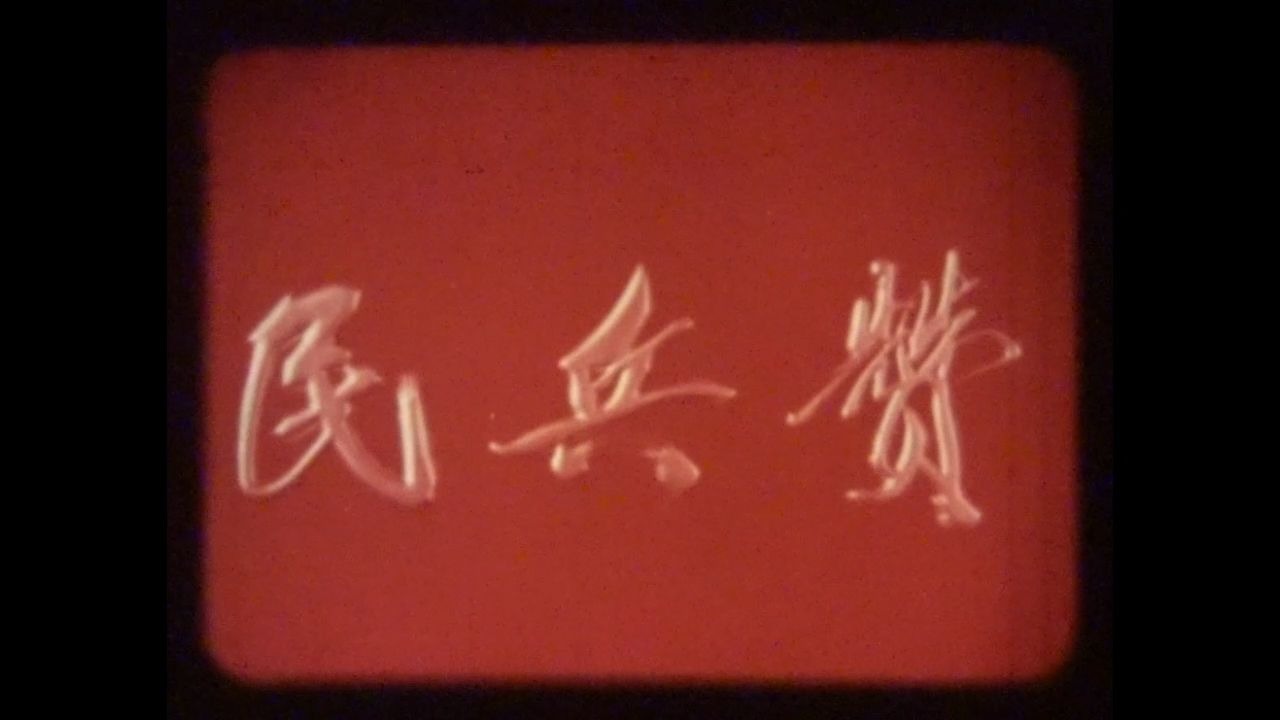 民兵赞